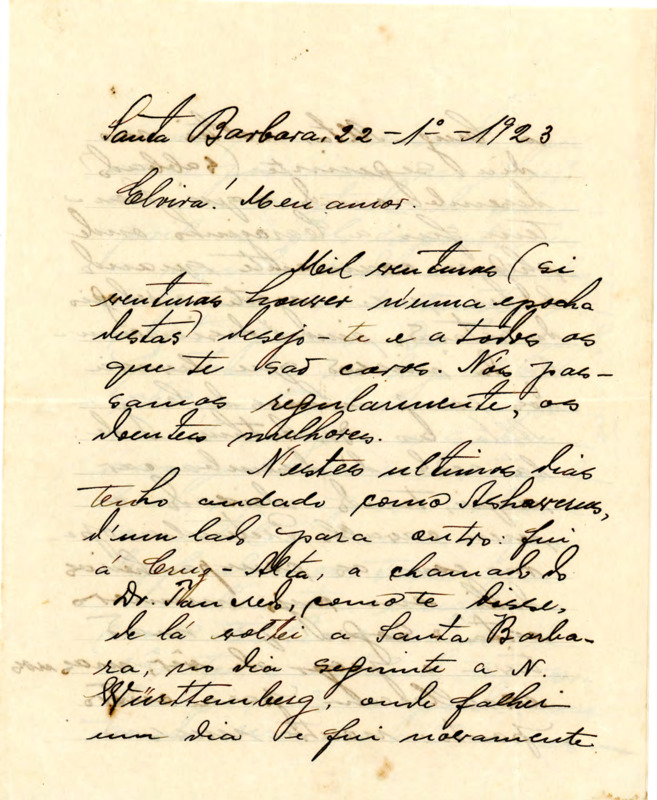 Santa Barbara, 22-1º-1923
Elvira! Meu amor.
Mil venturas (si
venturas houver n'uma epocha
destas) desejo-te e a todos os
que te são caros. Nós pas-
samos regularmente, os
doentes melhores.
Nestes ultimos dias
tenho andado como Ashaverus,
d'um lado para outro: fui
á Cruz-Alta, a chamado do
Dr. Tancredo, como te disse,
de lá voltei a Santa Barba-
ra, no dia seguinte a N.
Württemberg, onde falhei
um dia e fui novamente